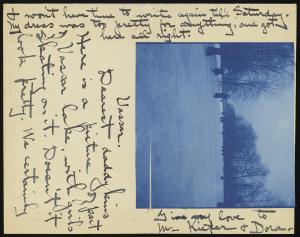 Vassar.
Dearest daddykins
Here is a picture of part
of Vassar Lake, with girls
skating on it. Doesn't it
look pretty. We certainly
I won't have time to write again till Saturday.
My dress was too pretty for anything, and got
here all right.
Give my love to
Mr. Kiefer & Dora-